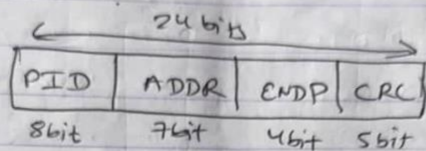 24 bits
PID ADDR ENDP CRC
8bit 7bit 4bit 5bit